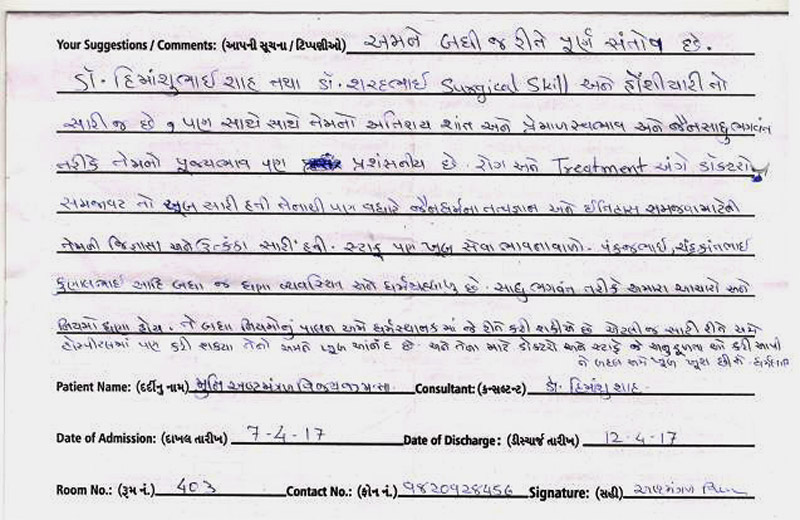 Your Suggestions / Comments: (આપની સૂચના / ટિપ્પણીઓ) અમને બધી જ રીતે પૂર્ણ સંતોષ છે.
ડૉ. હિમાંશુભાઈ શાહ તથા ડૉ. શરદભાઈ Surgical Skill અને હોંશીયારી તો
સારી જ છે, પણ સાથે સાથે તેમનો અતિશય શાંત અને પ્રેમાળ સ્વભાવ અને જૈન સાધુ ભગવંત
તરીકે તેમનો પૂજ્યભાવ પણ પ્રશંસનીય છે. રોગ અને Treatment અંગે ડોક્ટરો
સમજાવટ તો ખૂબ સારી હતી તેનાથી પણ વધારે જૈનધર્મના તત્વજ્ઞાન અને ઈતિહાસ સમજવા માટેની
તેમની જિજ્ઞાસા અને ઉત્કંઠા સારી હતી. સ્ટાફ પણ ખૂબ સેવા ભાવનાવાળો. પંકજભાઈ, ચંદ્રકાંતભાઈ
કુણાલભાઈ આદિ બધા જ ઘણા વ્યવસ્થિત અને છે. સાધુ ભગવંત તરીકે અમારા આચારો અને
નિયમો ઘણા હોય. તે બધા નિયમોનું પાલન અમે ધર્મસ્થાનકમાં જે રીતે કરી શકીએ છે એટલી જ સારી રીતે અમે
હોસ્પીટલમાં પણ કરી શક્યા તેનો અમને ખૂબ આનંદ છે. અને તેના માટે ડોક્ટરો અને સ્ટાફે જે અનુકૂળતા કરી આપી
તે બદલ અમે ખૂબ ખુશ છીએ. ધર્મલાભ
Patient Name: (દર્દીનુ નામ) મુનિ વિજયજી મ.સા. Consultant: (કન્સલ્ટન્ટ) ડૉ. હિમાંશુ શાહ.
Date of Admission: (દાખલ તારીખ) 7-4-17 Date of Discharge: (ડીસ્ચાર્જ તારીખ) 12-4-17
Room No.: (રૂમ નં.) 403 Contact No.: (ફોન નં.) 9820928456 Signature: (સહી)